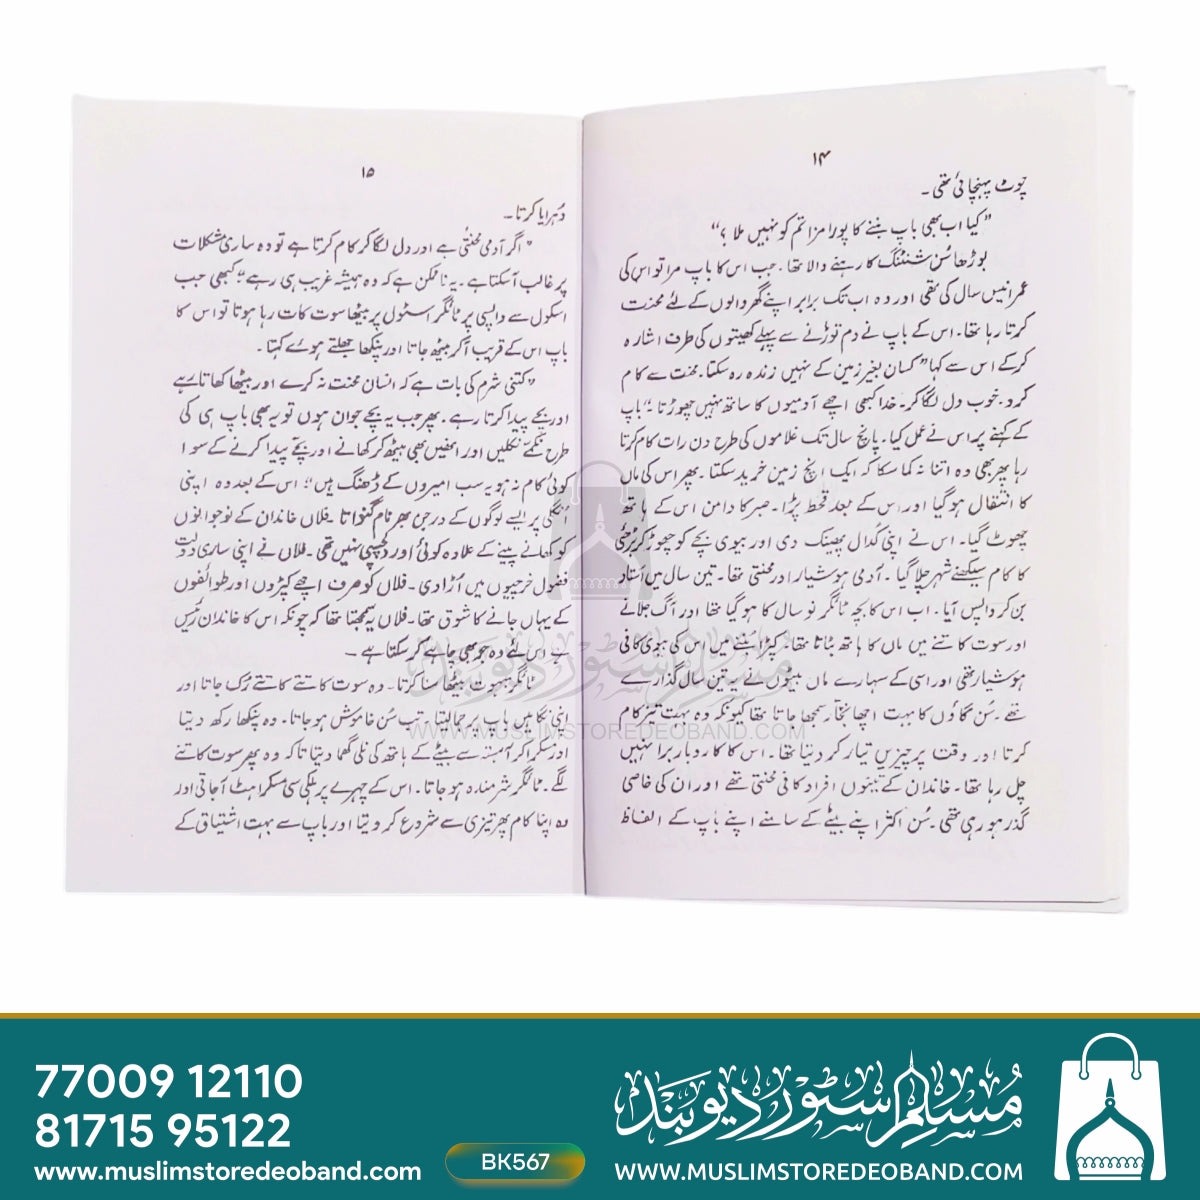 ۱۴
چوٹ پہنچائی تھی۔
"کیا اب بھی باپ بننے کا پورا مزا تم کو نہیں ملا؟"
بوڑھا سُن شنتنگ کا رہنے والا تھا۔ جب اس کا باپ مرا تو اس کی
عمر انیس سال کی تھی اور وہ اب تک برابر اپنے گھر والوں کے لئے محنت
کرتا رہا تھا۔ اس کے باپ نے دم توڑنے سے پہلے کھیتوں کی طرف اشارہ
کر کے اس سے کہا "کسان بغیر زمین کے نہیں زندہ رہ سکتا۔ محنت سے کام
کرو۔ خوب دل لگا کر۔ خدا کبھی اچھے آدمیوں کا ساتھ نہیں چھوڑتا۔" باپ
کے کہنے پر اس نے عمل کیا۔ پانچ سال تک غلاموں کی طرح دن رات کام کرتا
رہا پھر بھی وہ اتنا نہ کما سکا کہ ایک اپنچ زمین خرید سکتا۔ پھر اس کی ماں
کا انتقال ہو گیا اور اس کے بعد قحط پڑا۔ صبر کا دامن اس کے ہاتھ
چھوٹ گیا۔ اس نے اپنی کدال پھینک دی اور بیوی بچے کو چھوڑ کر بڑھئی
کا کام سیکھنے شہر چلا گیا۔ آدمی ہوشیار اور محنتی تھا۔ تین سال میں استاد
بن کر واپس آیا۔ اب اس کا بچہ ٹانگر نو سال کا ہو گیا تھا اور آگ جلانے
اور سوت کاتنے میں ماں کا ہاتھ بٹاتا تھا۔ کپڑا بننے میں اس کی بیوی کافی
ہوشیار تھی اور اسی کے سہارے ماں بیٹوں نے یہ تین سال گذارے
تھے۔ سُن گاؤں کا بہت اچھا نجار سمجھا جاتا تھا کیونکہ وہ بہت تیز کام
کرتا اور وقت پر چیزیں تیار کر دیتا تھا۔ اس کا کاروبار برا نہیں
چل رہا تھا۔ خاندان کے تینوں افراد کافی محنتی تھے اور ان کی خاصی
گذر ہو رہی تھی۔ سُن اکثر اپنے بیٹے کے سامنے اپنے باپ کے الفاظ
۱۵
دُہرایا کرتا۔
"اگر آدمی محنتی ہے اور دل لگا کر کام کرتا ہے تو وہ ساری مشکلات
پر غالب آ سکتا ہے۔ یہ نا ممکن ہے کہ وہ ہمیشہ غریب ہی رہے" کبھی جب
اسکول سے واپسی پر ٹانگر اسٹول پر بیٹھا سوت کات رہا ہوتا تو اس کا
باپ اس کے قریب آ کر بیٹھ جاتا اور پنکھا جھلتے ہوئے کہتا۔
"کتنی شرم کی بات ہے کہ انسان محنت نہ کرے اور بیٹھا کھاتا رہے
اور بچے پیدا کرتا رہے۔ پھر جب یہ بچے جوان ہوں تو یہ بھی باپ ہی کی
طرح نکمّے نکلیں اور انھیں بھی بیٹھ کر کھانے اور بچے پیدا کرنے کے سوا
کوئی کام نہ ہو یہ سب امیروں کے ڈھنگ ہیں" اس کے بعد وہ اپنی
اُنگلی پر ایسے لوگوں کے درجن بھر نام گنوا تا۔ فلاں خاندان کے نوجوانوں
کو کھانے پینے کے علاوہ کوئی اور دلچسپی نہیں تھی۔ فلاں نے اپنی ساری دولت
فضول خرچیوں میں اُڑا دی۔ فلاں کو صرف اچھے کپڑوں اور طوائفوں
کے یہاں جانے کا شوق تھا۔ فلاں یہ سمجھتا تھا کہ چونکہ اس کا خاندان رئیس
ہے اس لئے وہ جو بھی چاہے کر سکتا ہے۔
ٹانگر بہوت بیٹھا سنا کرتا۔ وہ سوت کاتتے کاتتے رُک جاتا اور
اپنی نگاہیں باپ پر جما لیتا۔ تب سُن خاموش ہو جاتا۔ وہ پنکھا رکھ دیتا
اور مسکرا کر آہستہ سے بیٹے کے ہاتھ کی نلی گھما دیتا تاکہ وہ پھر سوت کاتنے
لگے۔ ٹانگر شرمندہ ہو جاتا۔ اس کے چہرے پر ہلکی سی مسکراہٹ آ جاتی اور
وہ اپنا کام پھر تیزی سے شروع کر دیتا اور باپ سے بہت اشتیاق کے
مسلم سٹور دیوبند
WWW.MUSLIMSTOREDEOBAND.COM
77009 12110
81715 95122
www.muslimstoredeoband.com
BK567
مسلم سٹور دیوبند
WWW.MUSLIMSTOREDEOBAND.COM